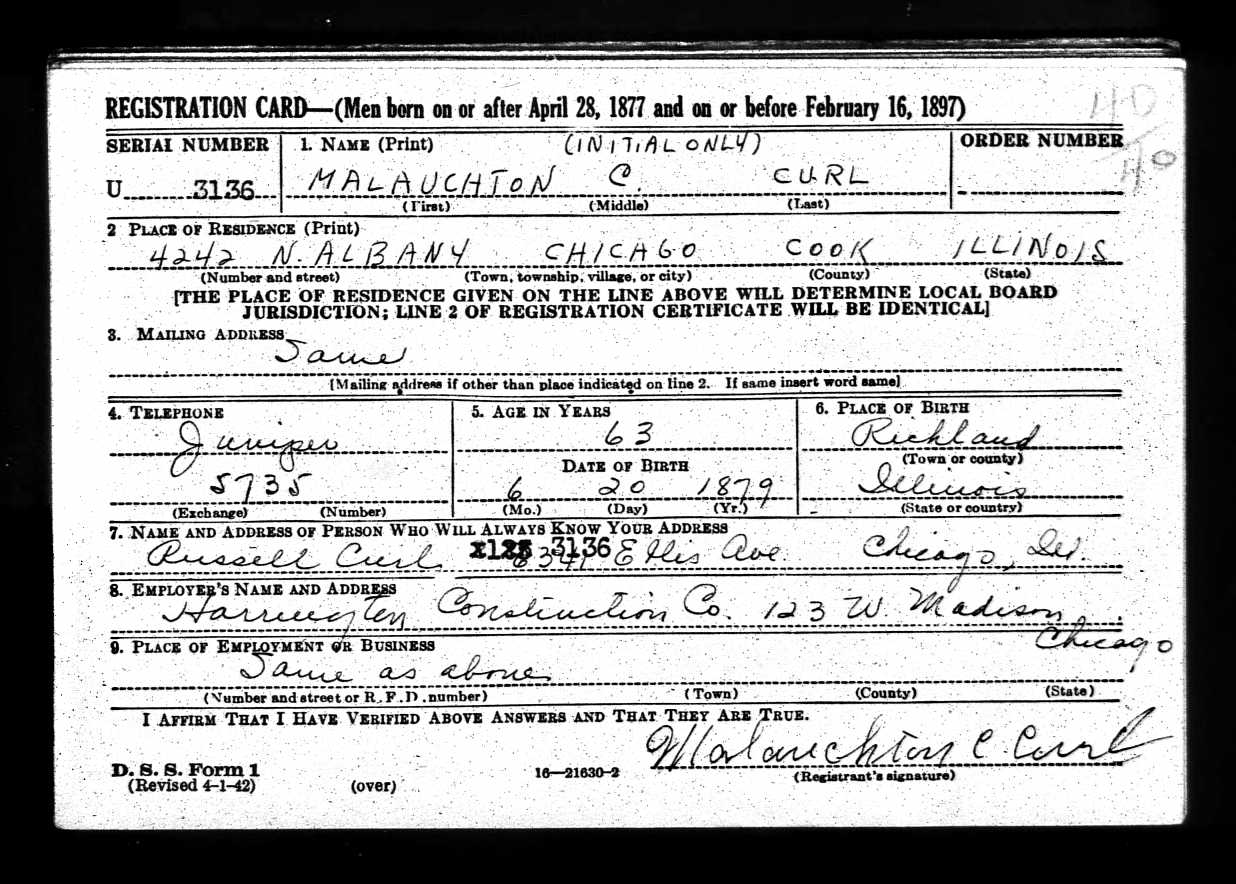 REGISTRATION CARD—(Men born on or after April 28, 1877 and on or before February 16, 1897)
40
SERIAL NUMBER 1. NAME (Print) (INITIAL ONLY) ORDER NUMBER
U 3136 MALAUCHTON C. CURL
(First) (Middle) (Last)
2 PLACE OF RESIDENCE (Print)
4242 N. ALBANY CHICAGO COOK ILLINOIS
(Number and street) (Town, township, village, or city) (County) (State)
[THE PLACE OF RESIDENCE GIVEN ON THE LINE ABOVE WILL DETERMINE LOCAL BOARD
JURISDICTION; LINE 2 OF REGISTRATION CERTIFICATE WILL BE IDENTICAL]
3. MAILING ADDRESS
Same
[Mailing address if other than place indicated on line 2. If same insert word same]
4. TELEPHONE 5. AGE IN YEARS 6. PLACE OF BIRTH
Juniper 63 Richland
DATE OF BIRTH (Town or county)
5735 6 20 1879 Illinois
(Exchange) (Number) (Mo.) (Day) (Yr.) (State or country)
7. NAME AND ADDRESS OF PERSON WHO WILL ALWAYS KNOW YOUR ADDRESS
Russell Curl 3136 Ellis Ave. Chicago, Ill.
8. EMPLOYER'S NAME AND ADDRESS
Harrington Construction Co. 123 W. Madison
Chicago
9. PLACE OF EMPLOYMENT OR BUSINESS
Same as above
(Number and street or R. F. D. number) (Town) (County) (State)
I AFFIRM THAT I HAVE VERIFIED ABOVE ANSWERS AND THAT THEY ARE TRUE.
Malauchton C. Curl
D. S. S. Form 1 16—21630-2 (Registrant's signature)
(Revised 4-1-42) (over)